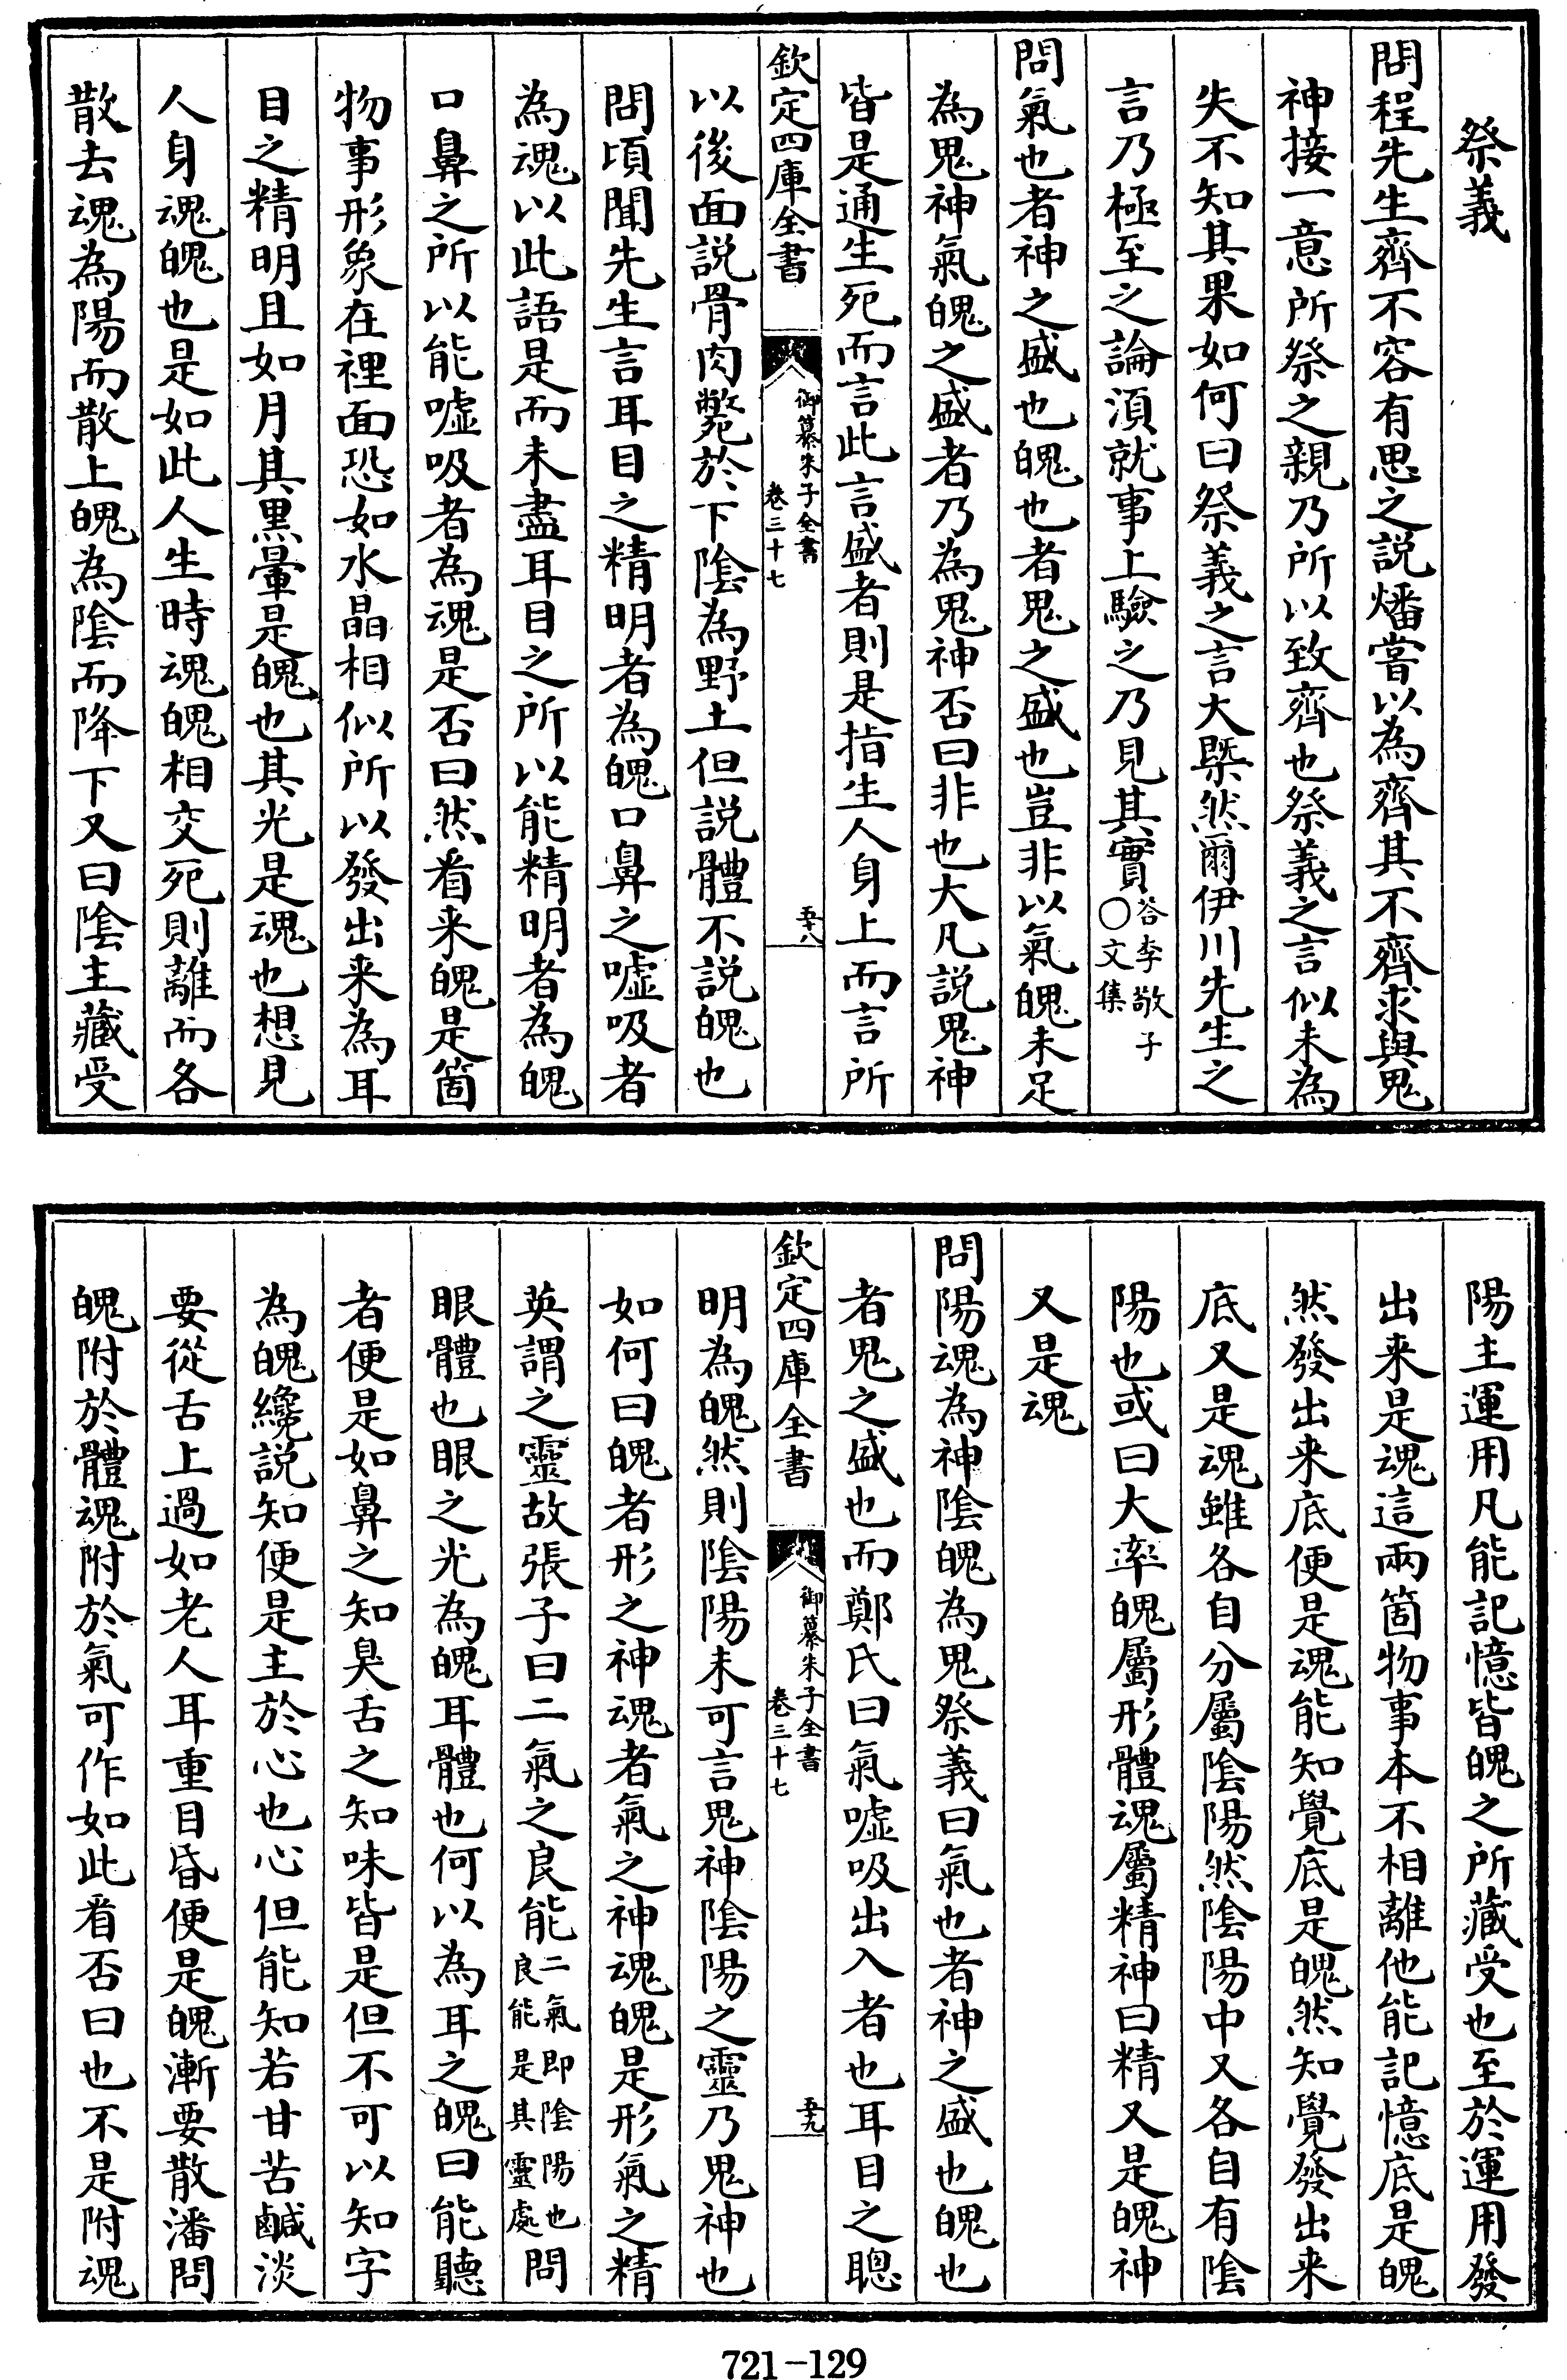 祭義
問程先生齊不容有思之説燔嘗以為齊其不齊求與鬼
神接一意所祭之親乃所以致齊也祭義之言似未為
失不知其果如何曰祭義之言大槩然爾伊川先生之
言乃極至之論須就事上驗之乃見其實答李敬子○文集
問氣也者神之盛也魄也者鬼之盛也豈非以氣魄未足
為鬼神氣魄之盛者乃為鬼神否曰非也大凡説鬼神
皆是通生死而言此言盛者則是指生人身上而言所
欽定四庫全書
御纂朱子全書
卷三十七
五十八
以後面説骨肉斃於下陰為野土但説體不説魄也
問頃聞先生言耳目之精明者為魄口鼻之嘘吸者
為魂以此語是而未盡耳目之所以能精明者為魄
口鼻之所以能嘘吸者為魂是否曰然看来魄是箇
物事形象在裡面恐如水晶相似所以發出来為耳
目之精明且如月其黑暈是魄也其光是魂也想見
人身魂魄也是如此人生時魂魄相交死則離而各
散去魂為陽而散上魄為陰而降下又曰陰主藏受
陽主運用凡能記憶皆魄之所藏受也至於運用發
出来是魂這兩箇物事本不相離他能記憶底是魄
然發出来底便是魂能知覺底是魄然知覺發出来
底又是魂雖各自分屬陰陽然陰陽中又各自有陰
陽也或曰大率魄屬形體魂屬精神曰精又是魄神
又是魂
問陽魂為神陰魄為鬼祭義曰氣也者神之盛也魄也
者鬼之盛也而鄭氏曰氣嘘吸出入者也耳目之聰
欽定四庫全書
御纂朱子全書
卷三十七
五十九
明為魄然則陰陽未可言鬼神陰陽之靈乃鬼神也
如何曰魄者形之神魂者氣之神魂魄是形氣之精
英謂之靈故張子曰二氣之良能二氣即陰陽也良能是其靈處問
眼體也眼之光為魄耳體也何以為耳之魄曰能聽
者便是如鼻之知臭舌之知味皆是但不可以知字
為魄纔説知便是主於心也心但能知若甘苦鹹淡
要從舌上過如老人耳重目昏便是魄漸要散潘問
魄附於體魂附於氣可作如此看否曰也不是附魂
721-129